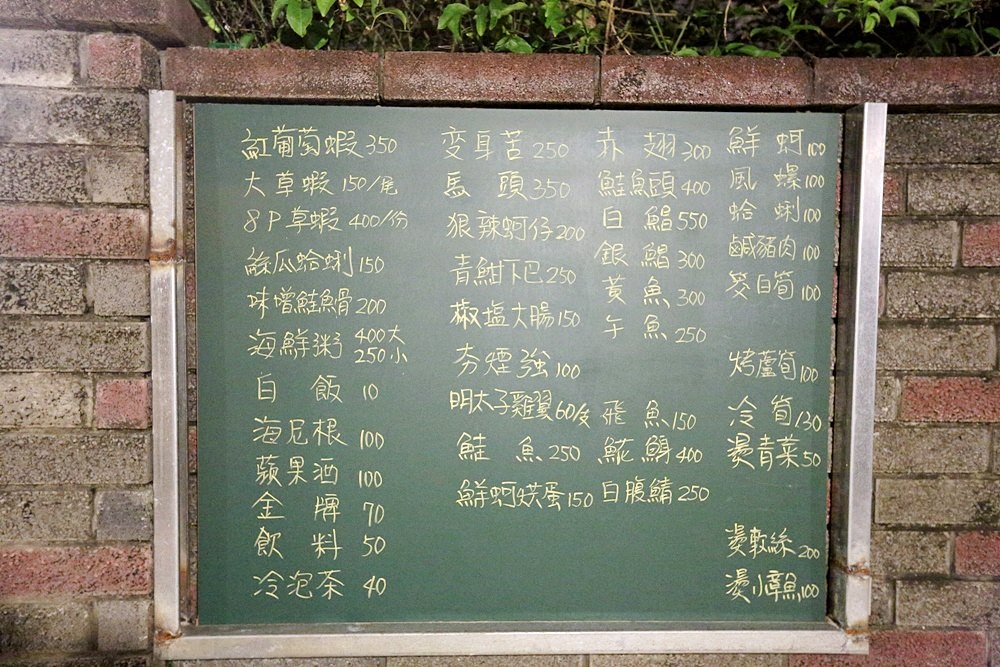 紅葡萄蝦 350
大草蝦 150/尾
8P草蝦 400/份
絲瓜蛤蜊 150
味增鮭魚骨 200
海鮮粥 400大
250小
白飯 10
海尼根 100
蘋果酒 100
金牌 70
飲料 50
冷泡茶 40
变身苦 250
馬頭 350
狠辣蚵仔 200
青魽下巴 250
椒塩大腸 150
夯煙強 100
明太子雞翼 60/支
鮭魚 250
鮮蚵烘蛋 150
赤翅 300
鮭魚頭 400
白鯧 550
銀鯧 300
黃魚 300
午魚 250
飛魚 150
白腹鯖 250
鮮蚵 100
風螺 100
蛤蜊 100
鹹豬肉 100
筊白筍 100
烤蘆筍 100
冷筍 130
燙青菜 50
燙小章魚 100